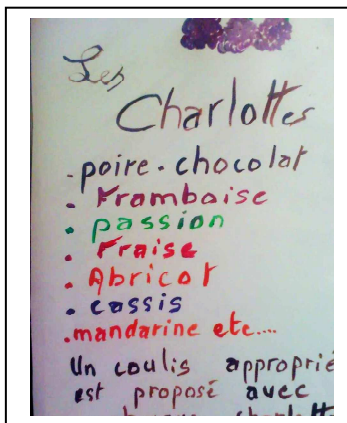 Les
Charlottes
-poire-chocolat
. Framboise
. passion
. Fraise
. Abricot
. cassis
.mandarine etc....
Un coulis approprié
est proposé avec